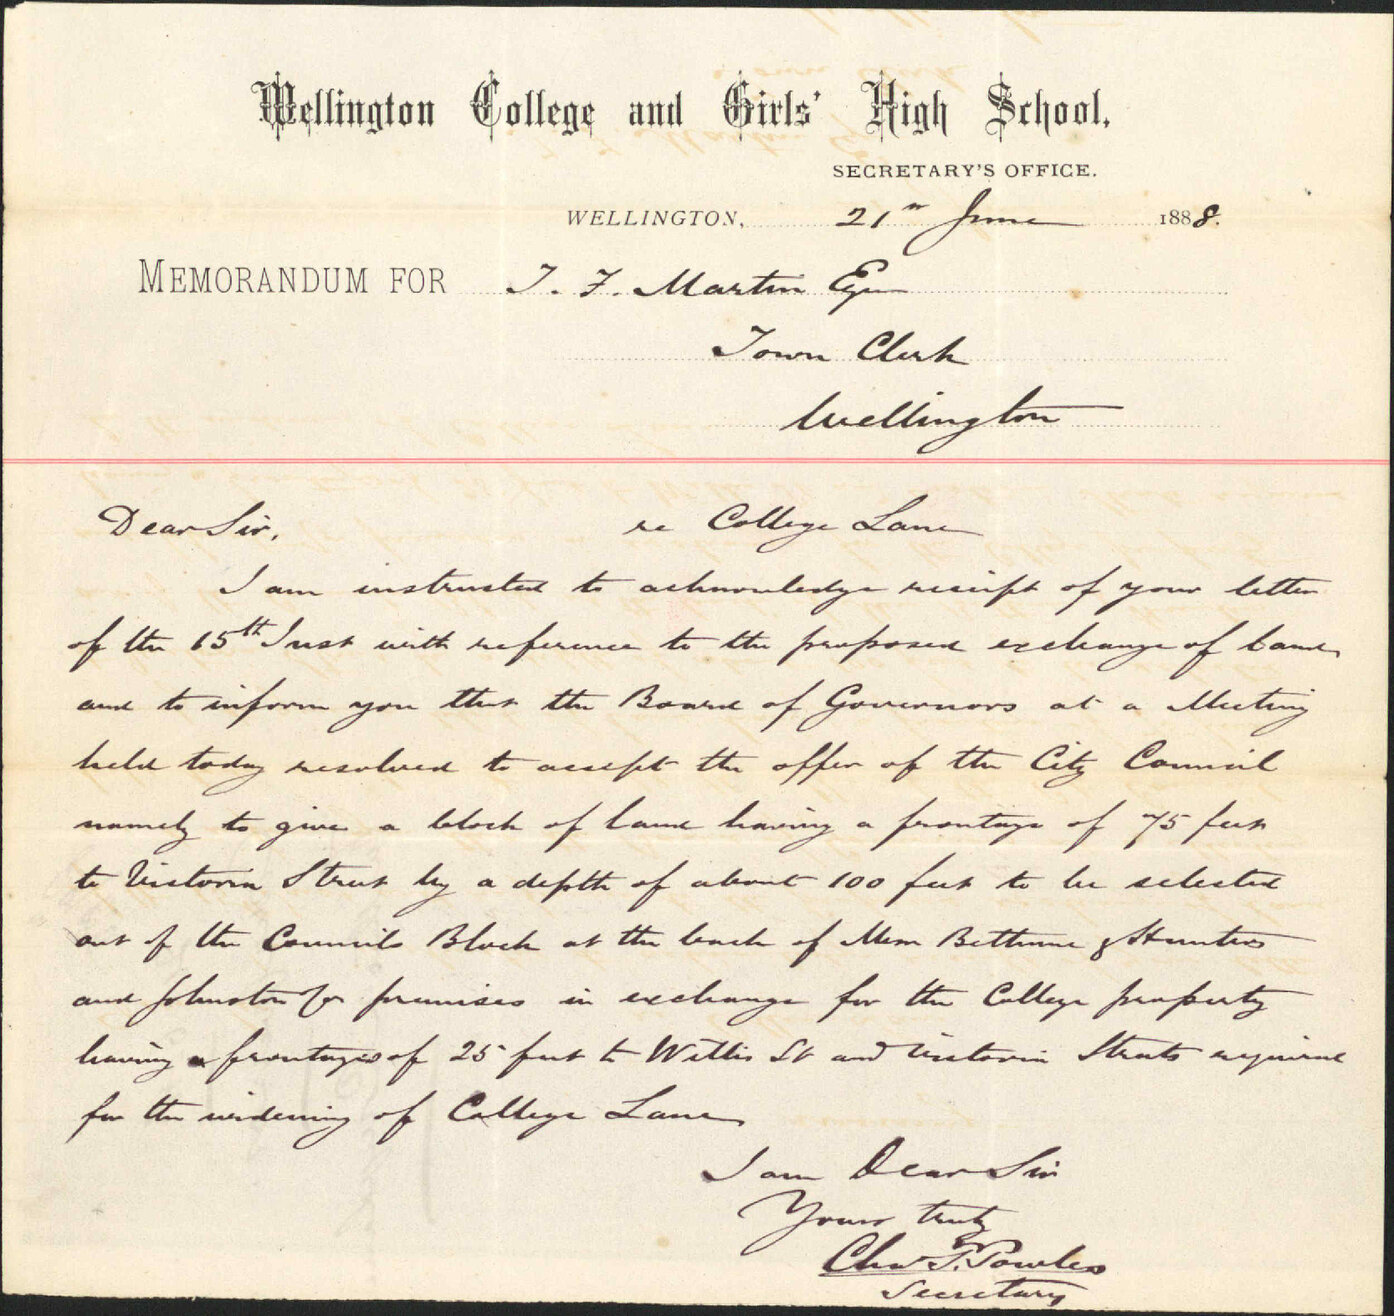 Wellington College and Girls' High School.
SECRETARY'S OFFICE.
WELLINGTON, 21st June 1888.
MEMORANDUM FOR J. F. Martin Esqr
Town Clerk
Wellington
Dear Sir, re College Lane
I am instructed to acknowledge receipt of your letter
of the 15th Inst with reference to the proposed exchange of land,
and to inform you that the Board of Governors at a Meeting
held today resolved to accept the offer of the City Council
namely to give a block of land having a frontage of 75 feet
to Victoria Street by a depth of about 100 feet to be selected
out of the Councils Block at the back of Messrs Bethune & Hunters
and Johnston & Co premises in exchange for the College property
having frontages of 25 feet to Willis St and Victoria Streets required
for the widening of College Lane
I am Dear Sir
Yours truly
Chas P. Powles
Secretary